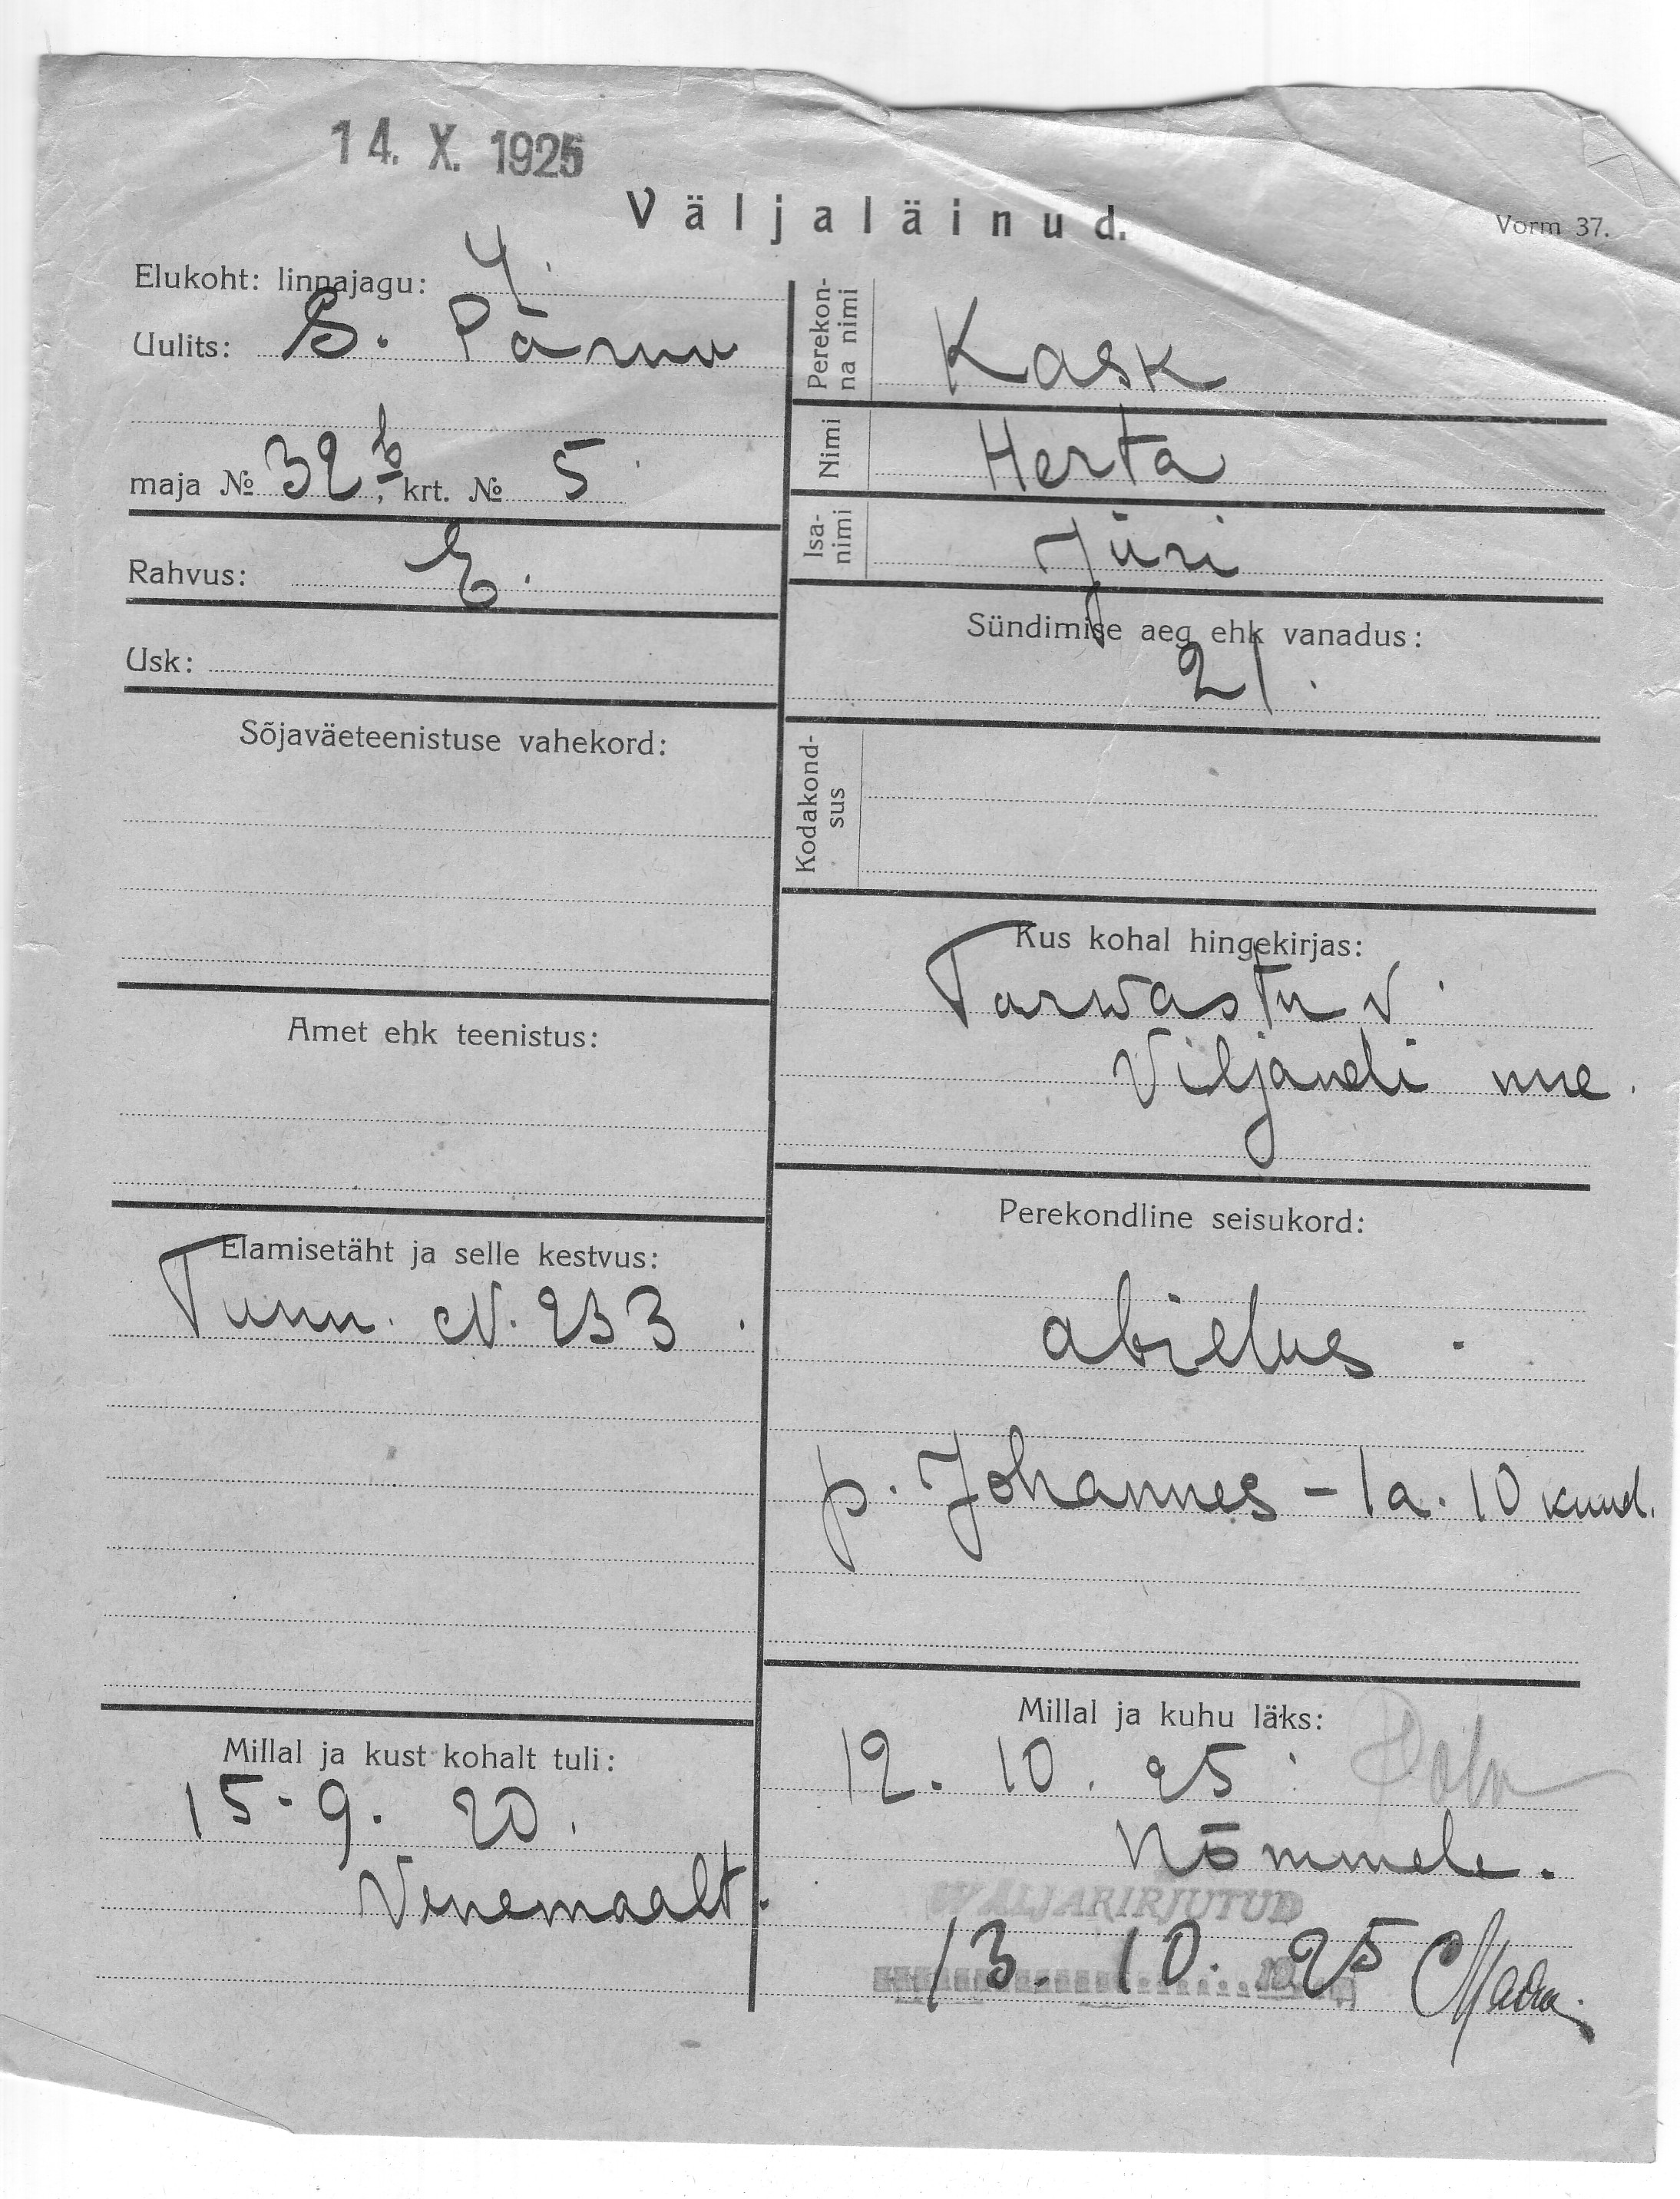 14. X. 1925
Väljaläinud.
Vorm 37.
Elukoht: linnajagu: 4.
Uulits: S. Pärnu
maja № 32 b, krt. № 5
Rahvus: E.
Usk:
Sõjaväeteenistuse vahekord:
Amet ehk teenistus:
Elamisetäht ja selle kestvus:
Tunn. N. 233
Millal ja kust kohalt tuli:
15. 9. 20.
Venemaalt.
Perekon-
na nimi
Kask
Nimi
Herta
Isa-
nimi
Jüri
Sündimise aeg ehk vanadus:
21.
Kodakond-
sus
Kus kohal hingekirjas:
Tarwastu v.
Viljandi me.
Perekondline seisukord:
abielus.
p. Johannes – 1 a. 10 kuud.
Millal ja kuhu läks:
12. 10. 25.
Nõmmele.
WÄLJAKIRJUTUD
13. 10. 25